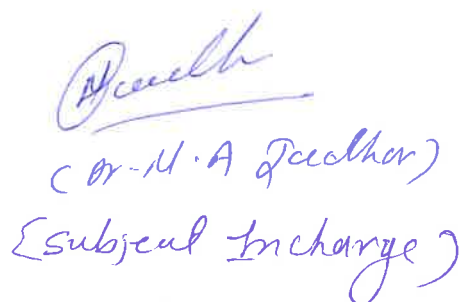 (Dr-M.A Jadhav)
{Subject Incharge)